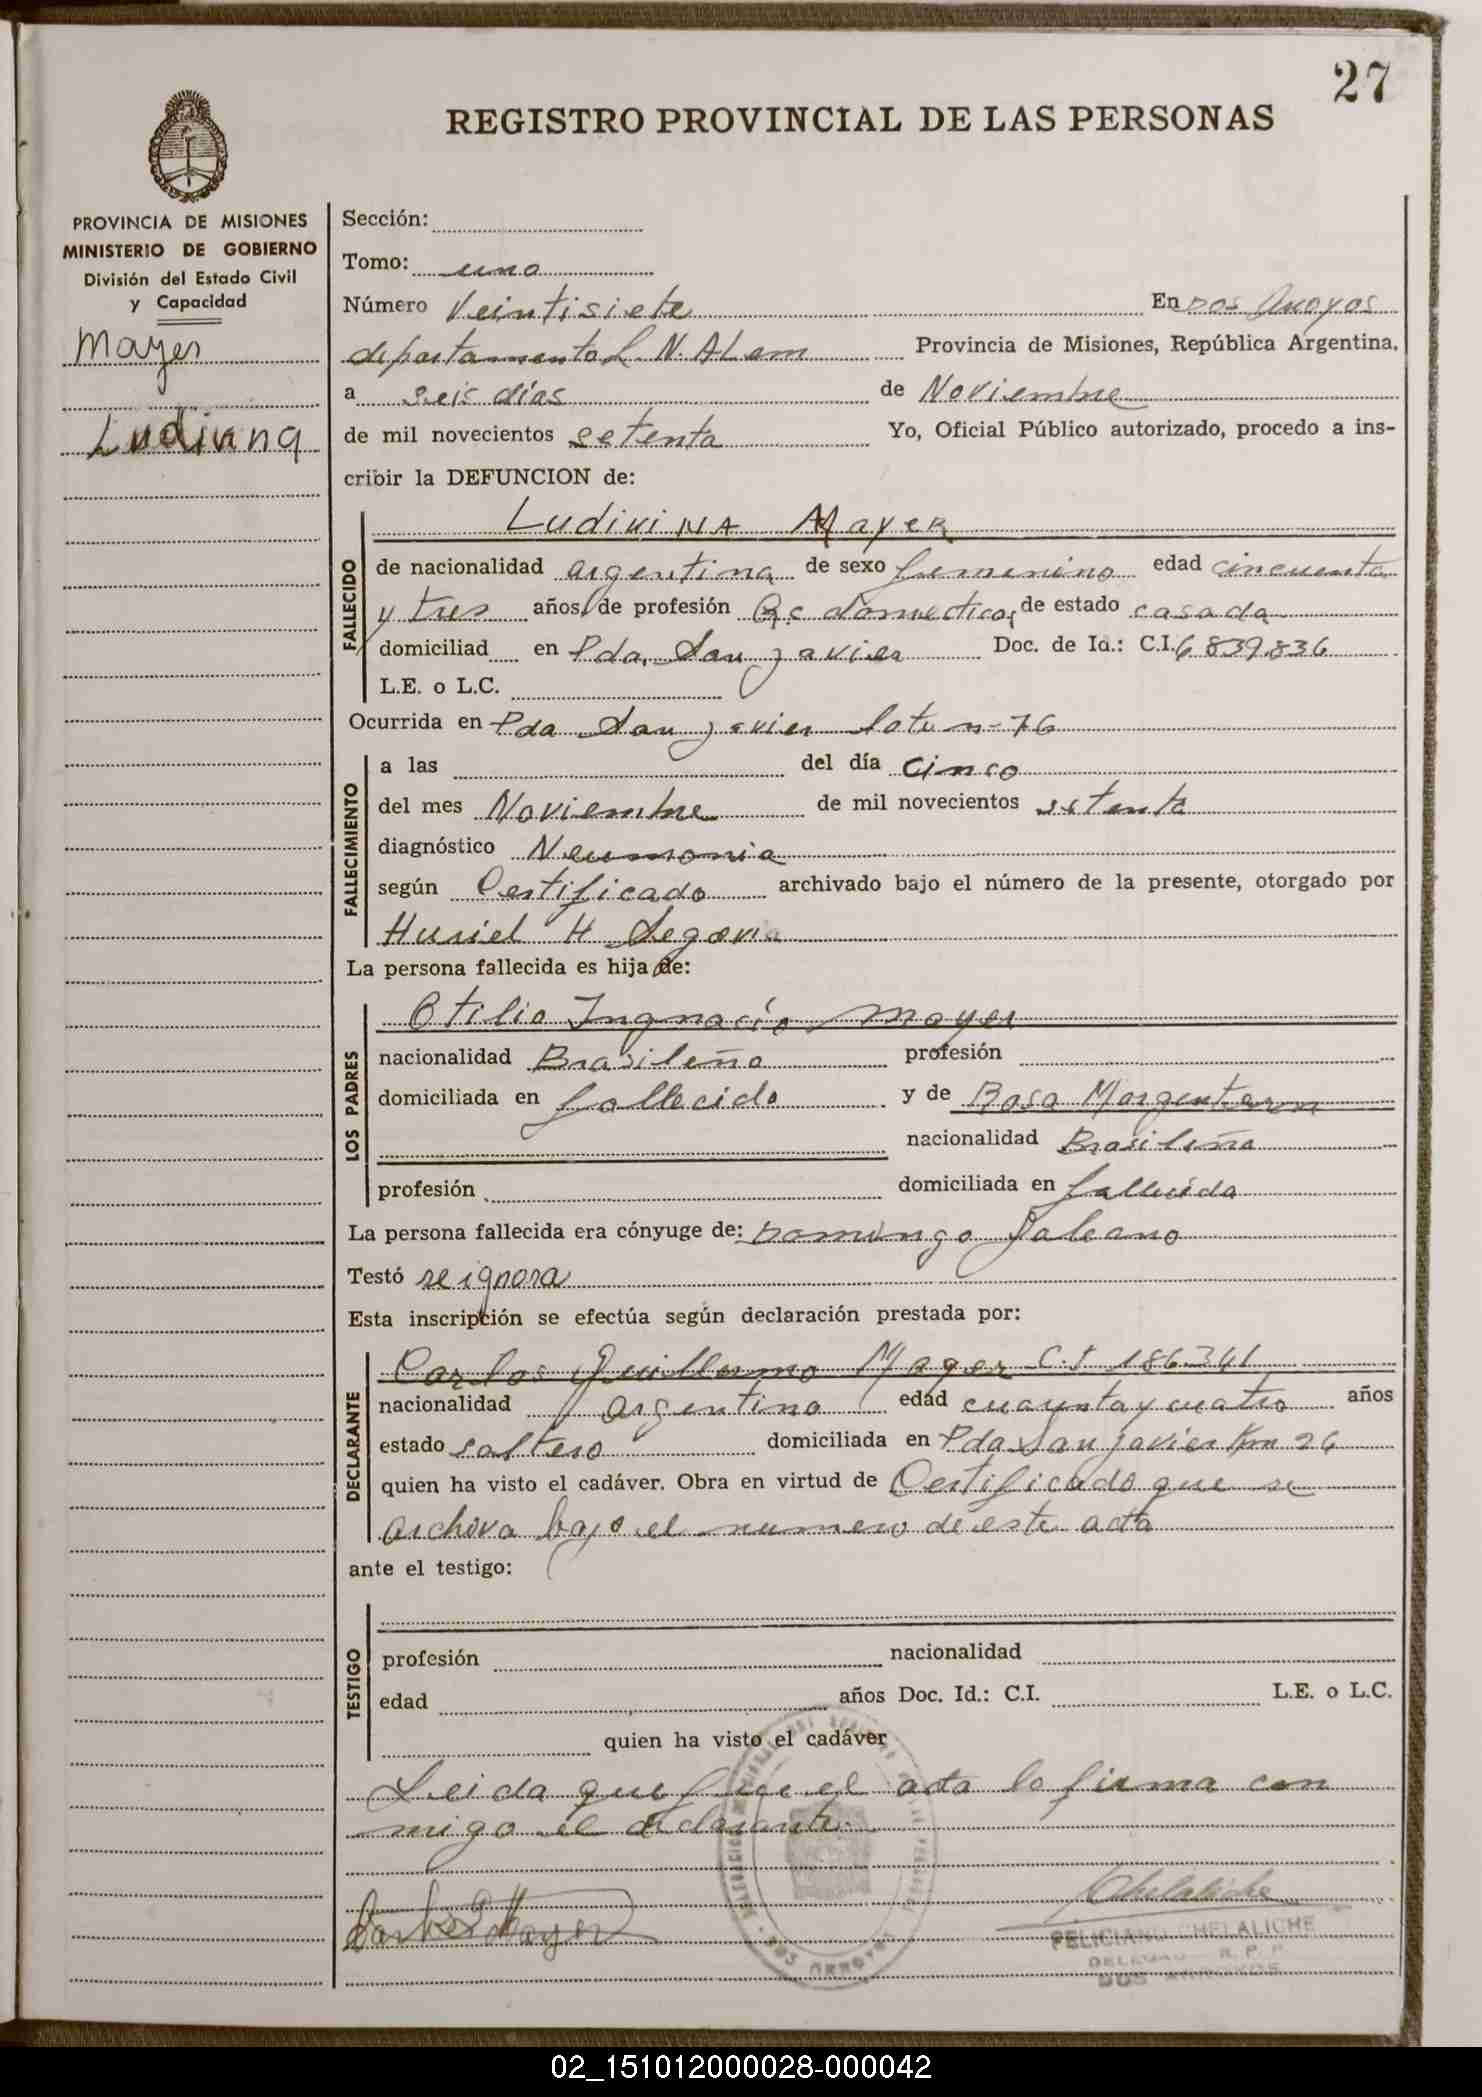 27
REGISTRO PROVINCIAL DE LAS PERSONAS
PROVINCIA DE MISIONES
MINISTERIO DE GOBIERNO
División del Estado Civil
y Capacidad
Mayer
Ludivina
Sección:
Tomo: uno
Número Veintisiete En Dos Arroyos
departamento L. N. ALem Provincia de Misiones, República Argentina,
a seis días de Noviembre
de mil novecientos setenta Yo, Oficial Público autorizado, procedo a ins-
cribir la DEFUNCION de:
LudiviNA MayeR
FALLECIDO
de nacionalidad argentina de sexo femenino edad cincuenta
y tres años, de profesión Q.c domesticos de estado casada
domiciliad en Pda. San Javier Doc. de Id.: C.I. 6839.836
L.E. o L.C.
Ocurrida en Pda San Javier lote n- 76
FALLECIMIENTO
a las del día cinco
del mes Noviembre de mil novecientos setenta
diagnóstico Neumonia
según Certificado archivado bajo el número de la presente, otorgado por
Huriel H Segovia
La persona fallecida es hija de:
LOS PADRES
Otilio Ingnacio Mayer
nacionalidad Brasileño profesión
domiciliada en fallecido y de Rosa Morgentaron
nacionalidad Brasileña
profesión domiciliada en fallecida
La persona fallecida era cónyuge de: Domingo Galeano
Testó se ignora
Esta inscripción se efectúa según declaración prestada por:
DECLARANTE
Carlos Guillermo Mayer C.I 186341
nacionalidad argentino edad cuarenta y cuatro años
estado soltero domiciliada en Pda San Javier Km 26
quien ha visto el cadáver. Obra en virtud de Certificado que se
archiva bajo el numero de este acta
ante el testigo:
TESTIGO
profesión nacionalidad
edad años Doc. Id.: C.I. L.E. o L.C.
quien ha visto el cadáver
Leida que fue el acta la firma con
migo el declarante.
Carlos G Mayer
FELICIANO CHELALICHE
DELEGADO R. P. P.
DOS ARROYOS
DOS ARROYOS
02_151012000028-000042